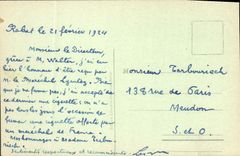 Rabat le 21 février 1924
Monsieur le Directeur,
grâce à M. Walter, j'ai eu
hier l'honneur d'être reçu par
le Maréchal Lyautey. Bien
que je ne fume pas, j'ai accepté de
une cigarette : on n'a
pas tous les jours l'occasion de
fumer une cigarette offerte par
un maréchal de France.
Mes hommages à Madame Tarbouriech.
Sentiments respectueux et reconnaissants.
Monsieur Tarbouriech
138 rue de Paris
Meudon
S. et O.